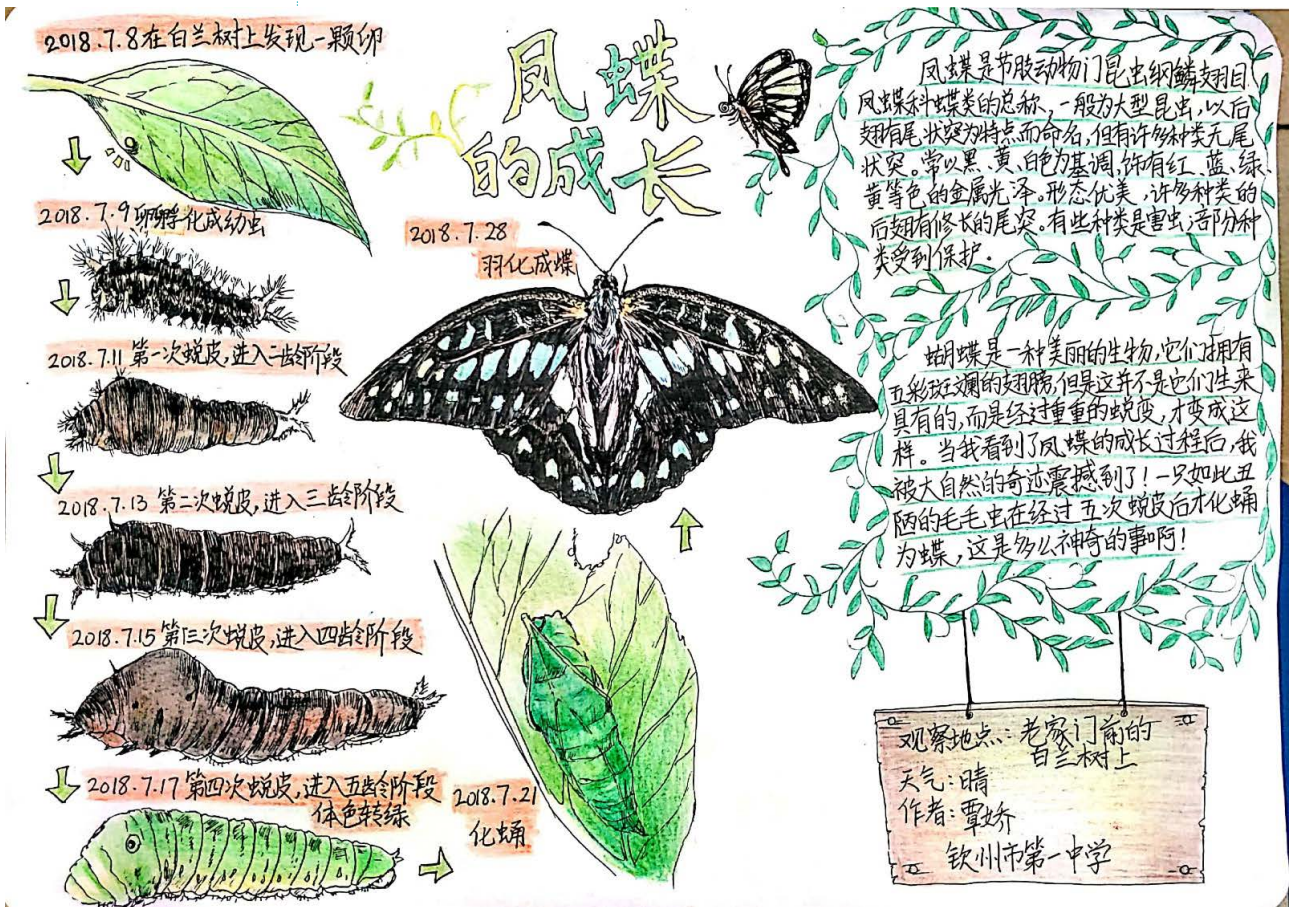 2018.7.8在白兰树上发现一颗卵
2018.7.9卵孵化成幼虫
2018.7.11第一次蜕皮,进入二龄阶段
2018.7.13第二次蜕皮,进入三龄阶段
2018.7.15第三次蜕皮,进入四龄阶段
2018.7.17第四次蜕皮,进入五龄阶段
体色转绿
2018.7.21
化蛹
2018.7.28
羽化成蝶
凤蝶
的成长
凤蝶是节肢动物门昆虫纲鳞翅目
凤蝶科蝶类的总称、一般为大型昆虫,以后
翅有尾状突为特点而命名,但有许多种类无尾
状突。常以黑、黄、白色为基调,饰有红、蓝、绿、
黄等色的金属光泽。形态优美,许多种类的
后翅有修长的尾突。有些种类是害虫,部分种
类受到保护.
蝴蝶是一种美丽的生物,它们拥有
五彩斑斓的翅膀,但是这并不是它们生来
具有的,而是经过重重的蜕变,才变成这
样。当我看到了凤蝶的成长过程后,我
被大自然的奇迹震撼到了!一只如此丑
陋的毛毛虫在经过五次蜕皮后才化蛹
为蝶,这是多么神奇的事啊!
观察地点:老家门前的
白兰树上
天气:晴
作者:覃娇
钦州市第一中学